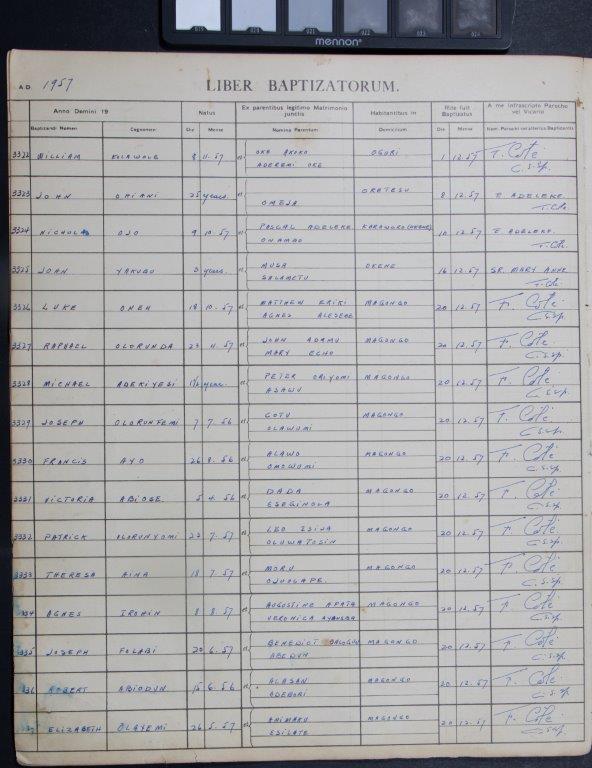 mennon
A.D. 1957 LIBER BAPTIZATORUM.
Anno Domini 19 Natus Ex parentibus legitimo Matrimonio junctis Habitantibus in Rite fuit Baptizatus A me infrascripto Parocho vel Vicario
Baptizandi Nomen Cognomen Die Mense Nomina Parentum Domicilium Die Mense Nom. Parochi
3322 WILLIAM KOLAWOLE 8 11.57 OKE AKOKO OGORI 1 12.57 F. Coté
ADEREMI OKE C.S.Sp.
3323 JOHN 25 years OKETESU 8 12.57 E ADELEKE.
OMEJA
3324 OJO 9 10.57 PASCAL ADELEKE 10 12.57 E ADELEKE.
ONAMAO
3325 JOHN YAKUBU 3 years. MUSA OKENE 16 12.57 SR. MARY ANNE
SALAMETU
3326 LUKE OMEH 18 10.57 MATTHEW ERIKI MAGONGO 20 12.57 F. Coté
AGNES C.S.Sp.
3327 RAPHAEL OLORUNDA 23 11.57 JOHN ADAMU MAGONGO 20 12.57 F. Coté
MARY ECHO C.S.Sp.
3328 MICHAEL ADEKIYESI PETER MAGONGO 20 12.57 F. Coté
ASAWU C.S.Sp.
3329 JOSEPH OLORUNFEMI 7 7.56 GOTU MAGONGO 20 12.57 F. Coté
OLAWUMI C.S.Sp.
3330 FRANCIS AYO 26 8.56 ALAWO MAGONGO 20 12.57 F. Coté
OMOWUMI C.S.Sp.
3331 VICTORIA ABIOSE 5 4.56 DADA MAGONGO 20 12.57 F. Coté
ESEGINOLA C.S.Sp.
3332 PATRICK OLORUNYOMI 22 7.57 LEO MAGONGO 20 12.57 F. Coté
OLUWATOSIN C.S.Sp.
3333 THERESA AINA 18 7.57 MORU MAGONGO 20 12.57 F. Coté
C.S.Sp.
334 AGNES IROHIN 8 8.57 AUGOSTINE APATA MAGONGO 20 12.57 F. Coté
VERONICA C.S.Sp.
335 JOSEPH FOLABI 20 6.57 BENEDICT BALOGUN MAGONGO 20 12.57 F. Coté
ABEDUN C.S.Sp.
336 ROBERT ABIODUN 15 6.56 ALASAN MAGONGO 20 12.57 F. Coté
ODEBORI C.S.Sp.
ELIZABETH OLAYEMI 26 5.57 ANIMAKU MAGONGO 20 12.57 F. Coté
ESILATE C.S.Sp.